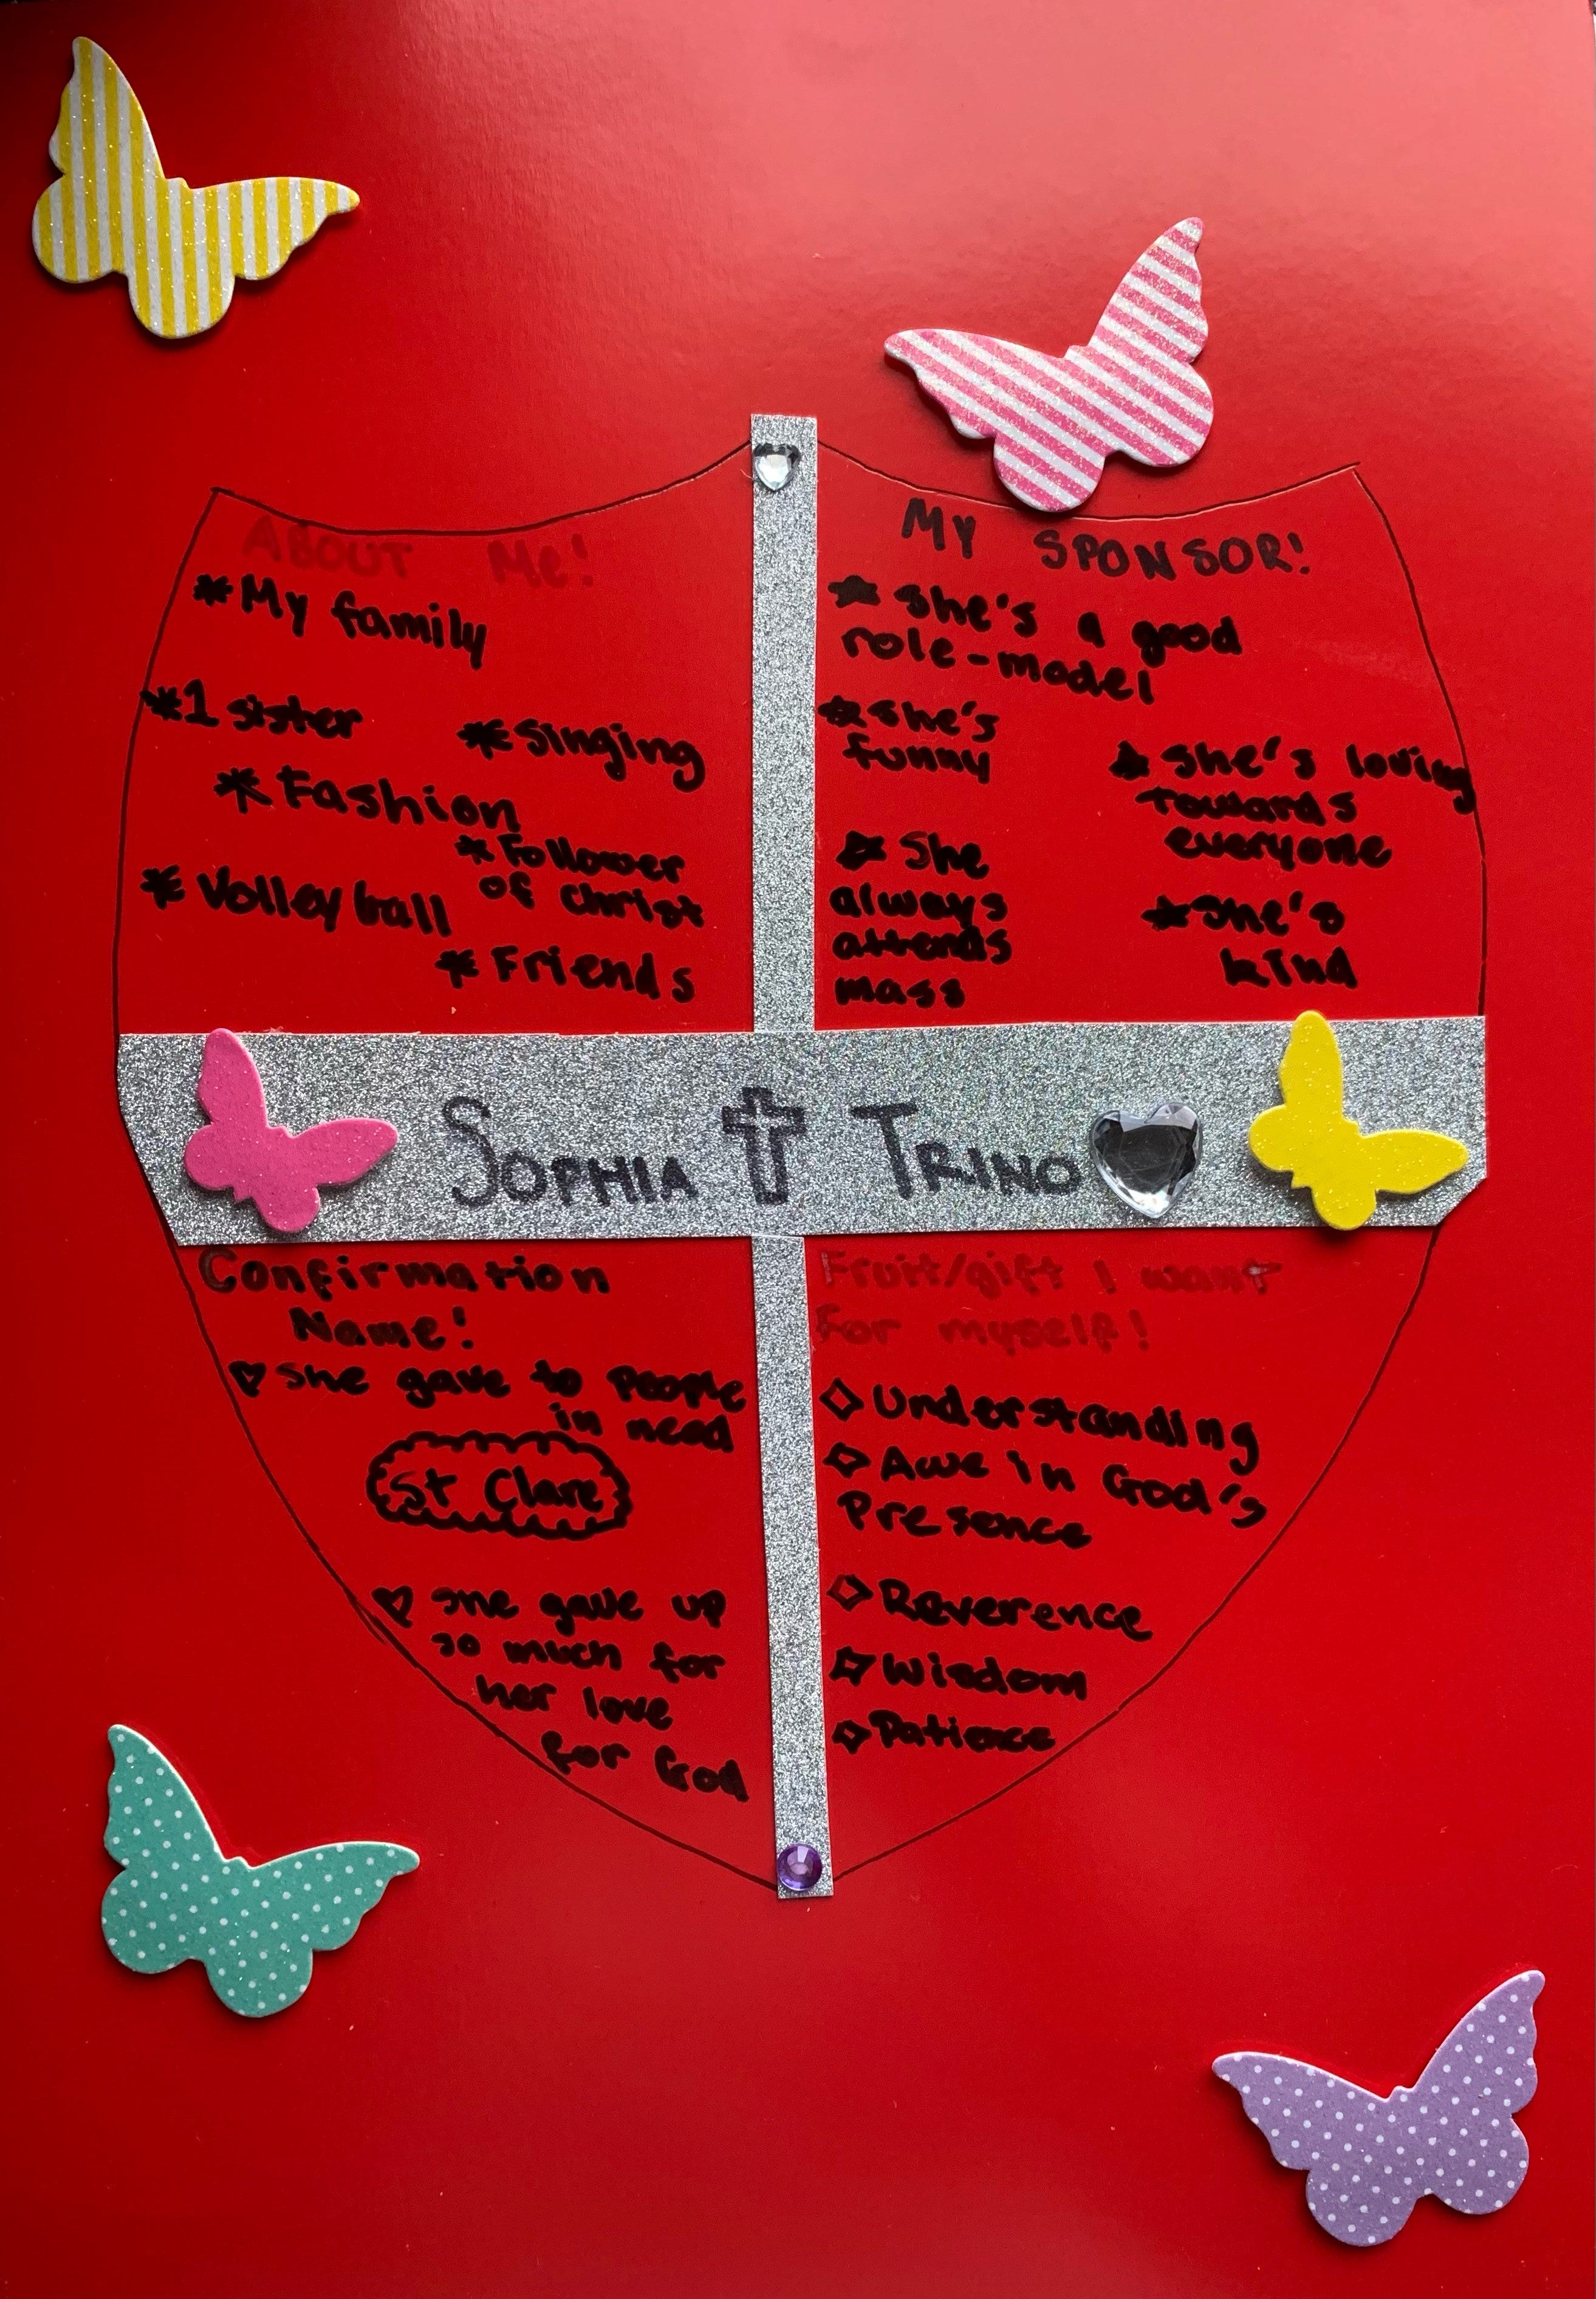 ABOUT Me!
*My family
*1 sister
*singing
*Fashion
*Follower
of christ
*Volleyball
*Friends
MY SPONSOR!
★ She's a good
role-model
★ She's
funny
★ She's loving
towards
everyone
★ She
always
attends
mass
★ She's
kind
SOPHIA ✝ TRINO
Confirmation
Name!
♡ She gave to people
in need
St Clare
♡ She gave up
so much for
her love
for God
Fruit/gift I want
For myself!
◇ Understanding
◇ Awe in God's
Presence
◇ Reverence
◇ Wisdom
◇ Patience